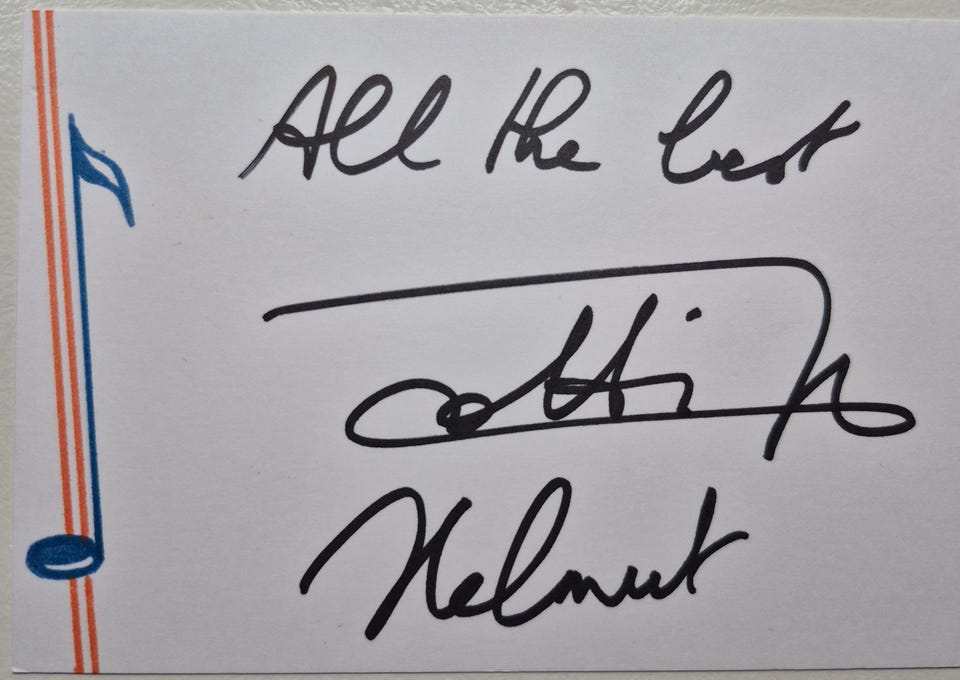 All the best
Helmut